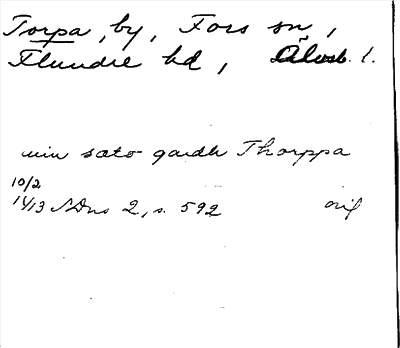 Torpa, by, Fors sn,
Flundre hd, Älvsb. l.
min sato gardh Thorppa
10/2
1413 SDns 2, s. 592 orig